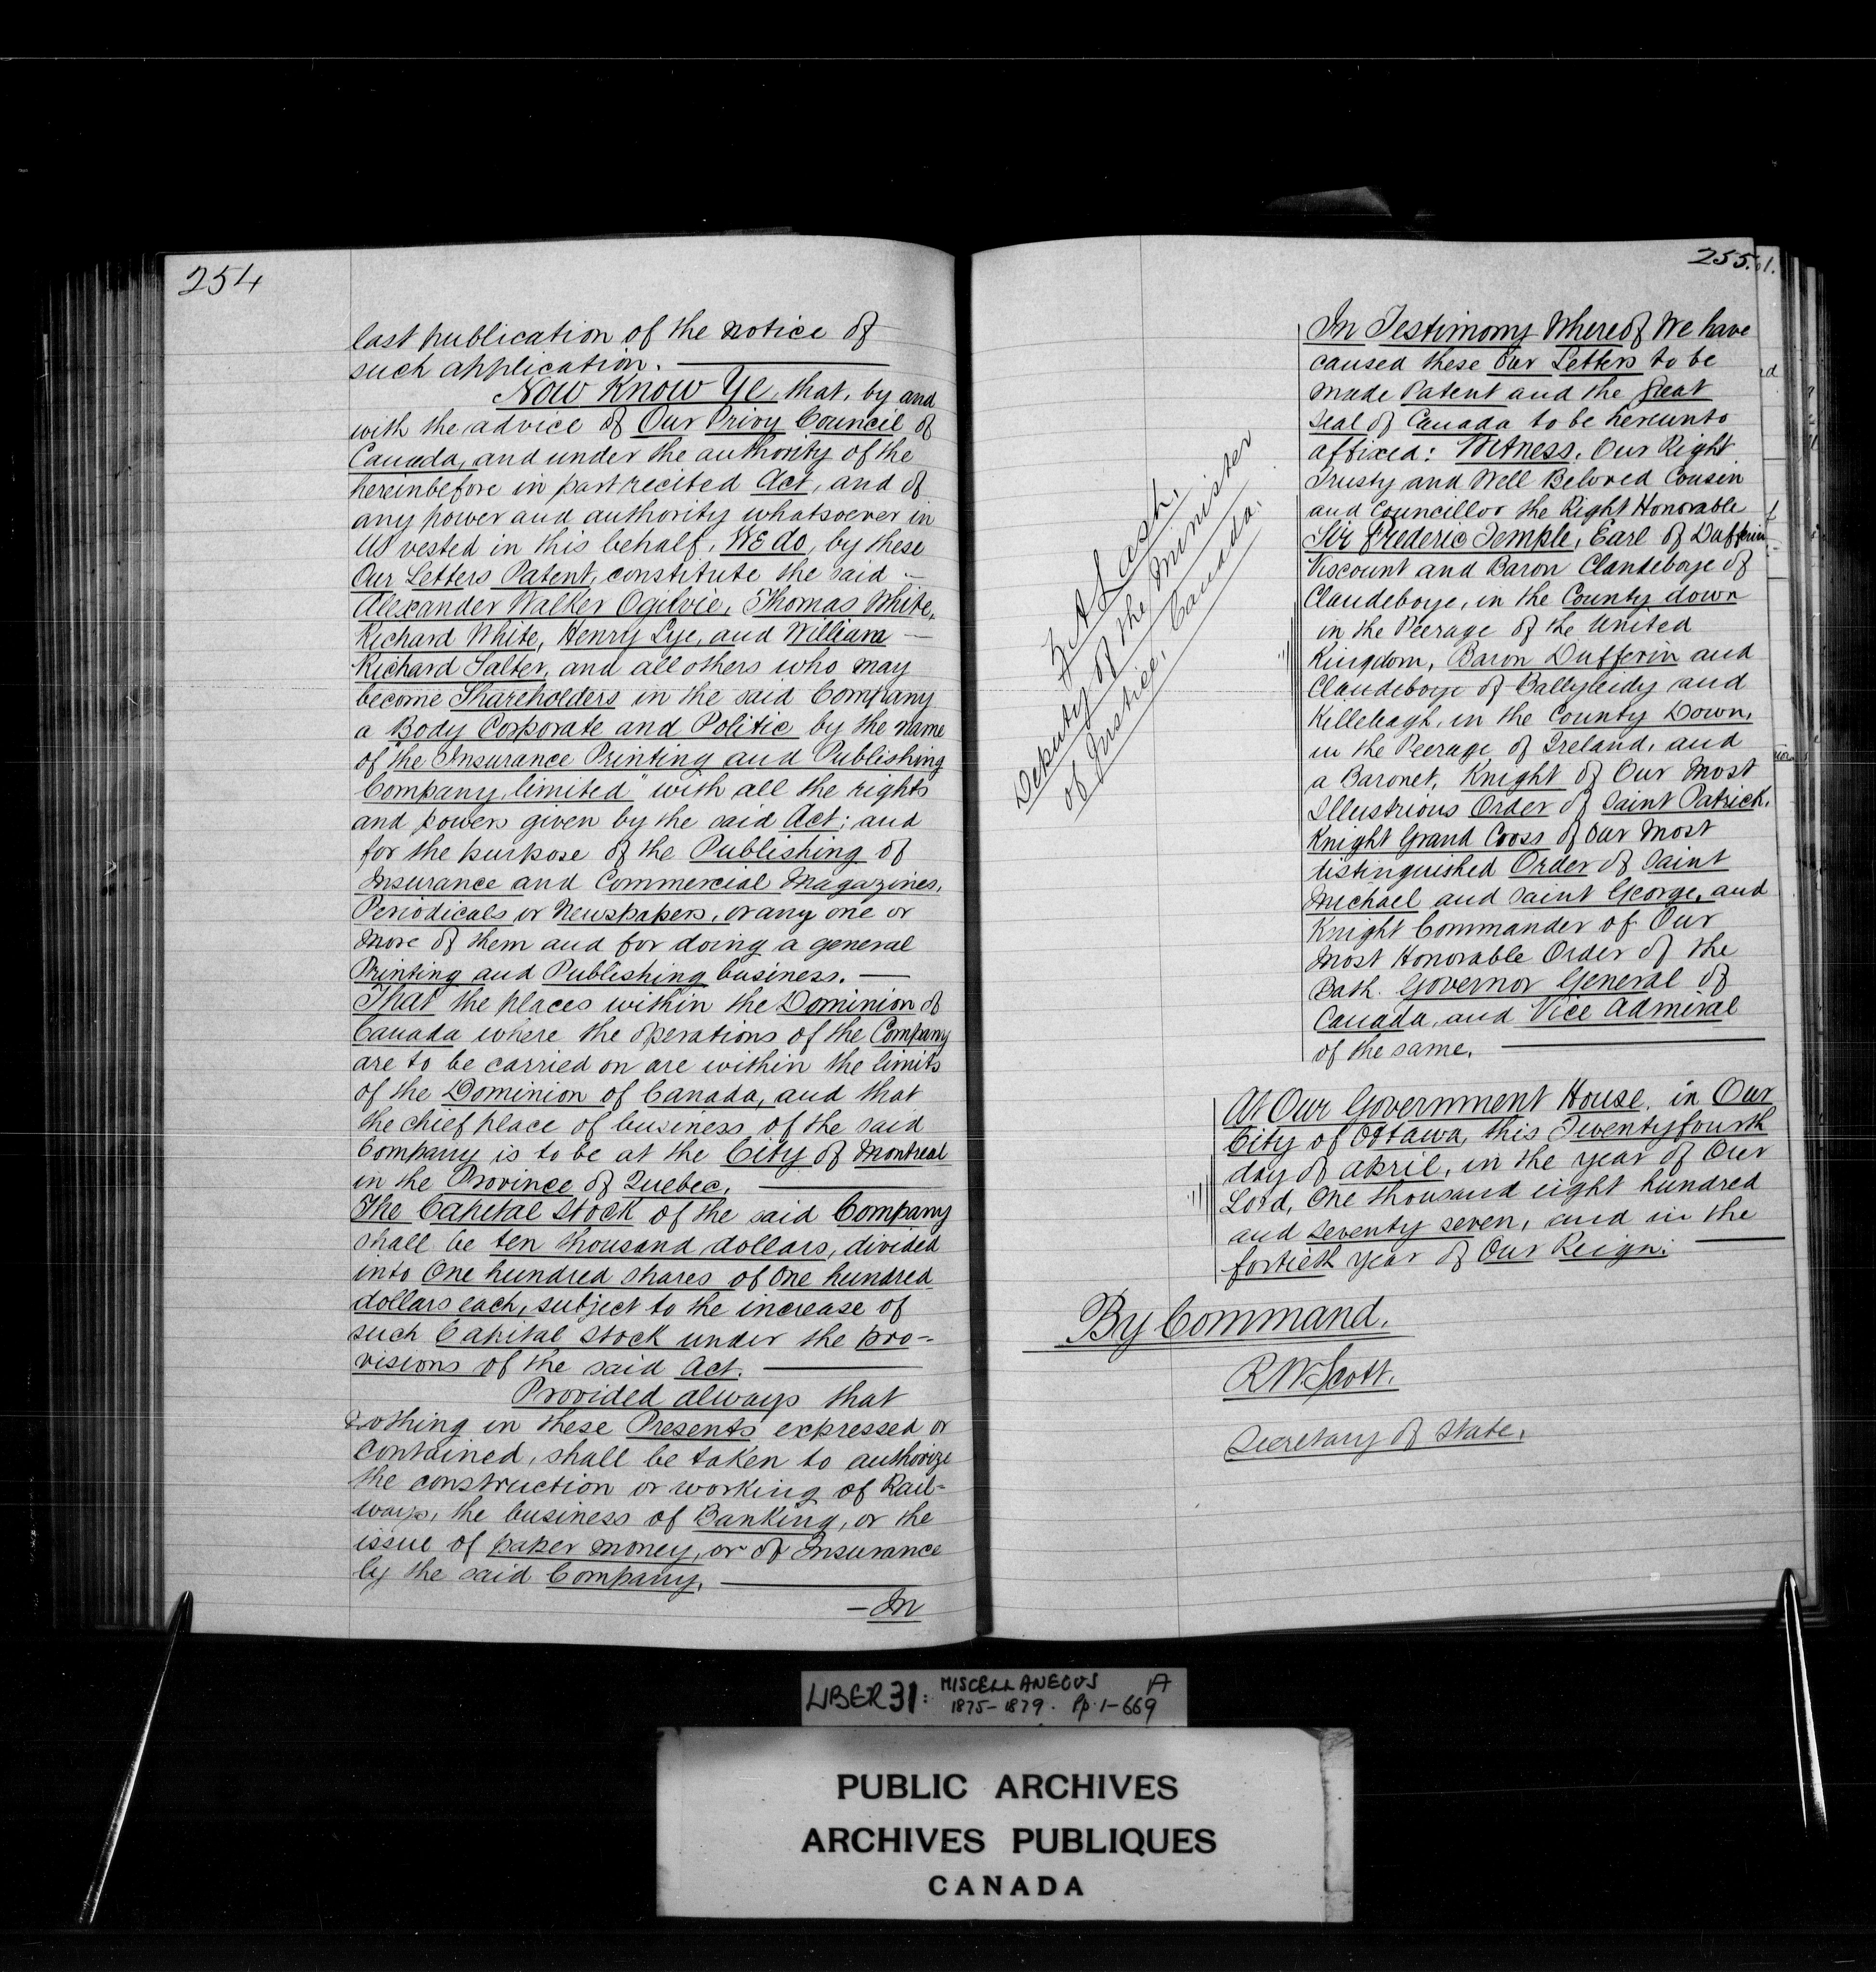 254
last publication of the notice of
such application.
Now Know Ye, that, by and
with the advice of Our Privy Council of
Canada, and under the authority of the
hereinbefore in part recited Act, and of
any power and authority whatsoever in
Us vested in this behalf, We do, by these
Our Letters Patent, constitute the said
Alexander Walker Ogilvie, Thomas White,
Richard White, Henry Lye, and William
Richard Salter, and all others who may
become Shareholders in the said Company
a Body Corporate and Politic by the name
of "the Insurance Printing and Publishing
Company, limited" with all the rights
and powers given by the said Act; and
for the purpose of the Publishing of
Insurance and Commercial Magazines,
Periodicals or Newspapers, or any one or
more of them and for doing a general
Printing and Publishing business.
That the places within the Dominion of
Canada where the operations of the Company
are to be carried on are within the limits
of the Dominion of Canada, and that
the chief place of business of the said
Company is to be at the City of Montreal
in the Province of Quebec.
The Capital Stock of the said Company
shall be ten thousand dollars, divided
into One hundred shares of One hundred
dollars each, subject to the increase of
such Capital Stock under the pro-
visions of the said Act.
Provided always that
nothing in these Presents expressed or
contained, shall be taken to authorize
the construction or working of Rail-
ways, the business of Banking, or the
issue of paper money, or of Insurance
by the said Company.
-In
255.
Z A Lash,
Deputy of the Minister
of Justice, Canada.
In Testimony Whereof We have
caused these Our Letters to be
made Patent and the Great
Seal of Canada to be hereunto
affixed: Witness, Our Right
Trusty and Well Beloved Cousin
and Councillor the Right Honorable
Sir Frederic Temple, Earl of Dufferin
Viscount and Baron Clandeboye of
Clandeboye, in the County down
in the Peerage of the United
Kingdom, Baron Dufferin and
Clandeboye of Ballyleidy and
Killeleagh, in the County Down,
in the Peerage of Ireland, and
a Baronet, Knight of Our Most
Illustrious Order of Saint Patrick,
Knight Grand Cross of Our Most
distinguished Order of Saint
Michael and Saint George, and
Knight Commander of Our
Most Honorable Order of the
Bath. Governor General of
Canada, and Vice Admiral
of the same.
At Our Government House, in Our
City of Ottawa, this Twentyfourth
day of April, in the year of Our
Lord, One thousand eight hundred
and seventy seven, and in the
fortieth year of Our Reign.
By Command.
R W Scott.
Secretary of State.
LIBER 31: MISCELLANEOUS A
1875-1879. Pp. 1-669
PUBLIC ARCHIVES
ARCHIVES PUBLIQUES
CANADA